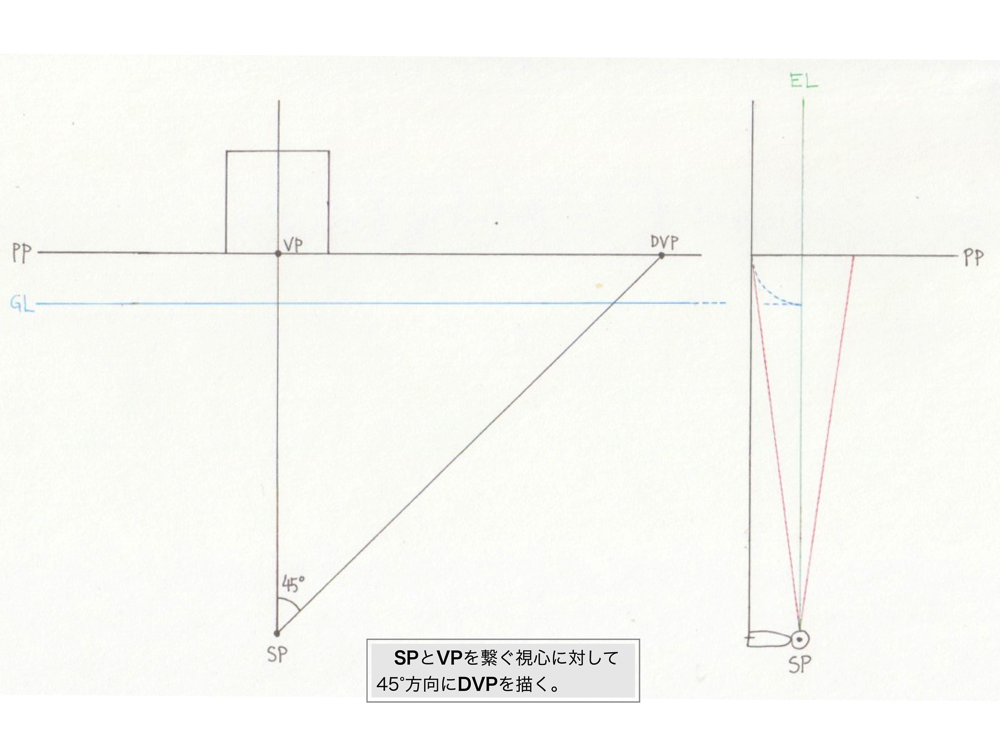 EL
PP
VP
DVP
PP
GL
45°
SP
SP
SPとVPを繋ぐ視心に対して
45°方向にDVPを描く。